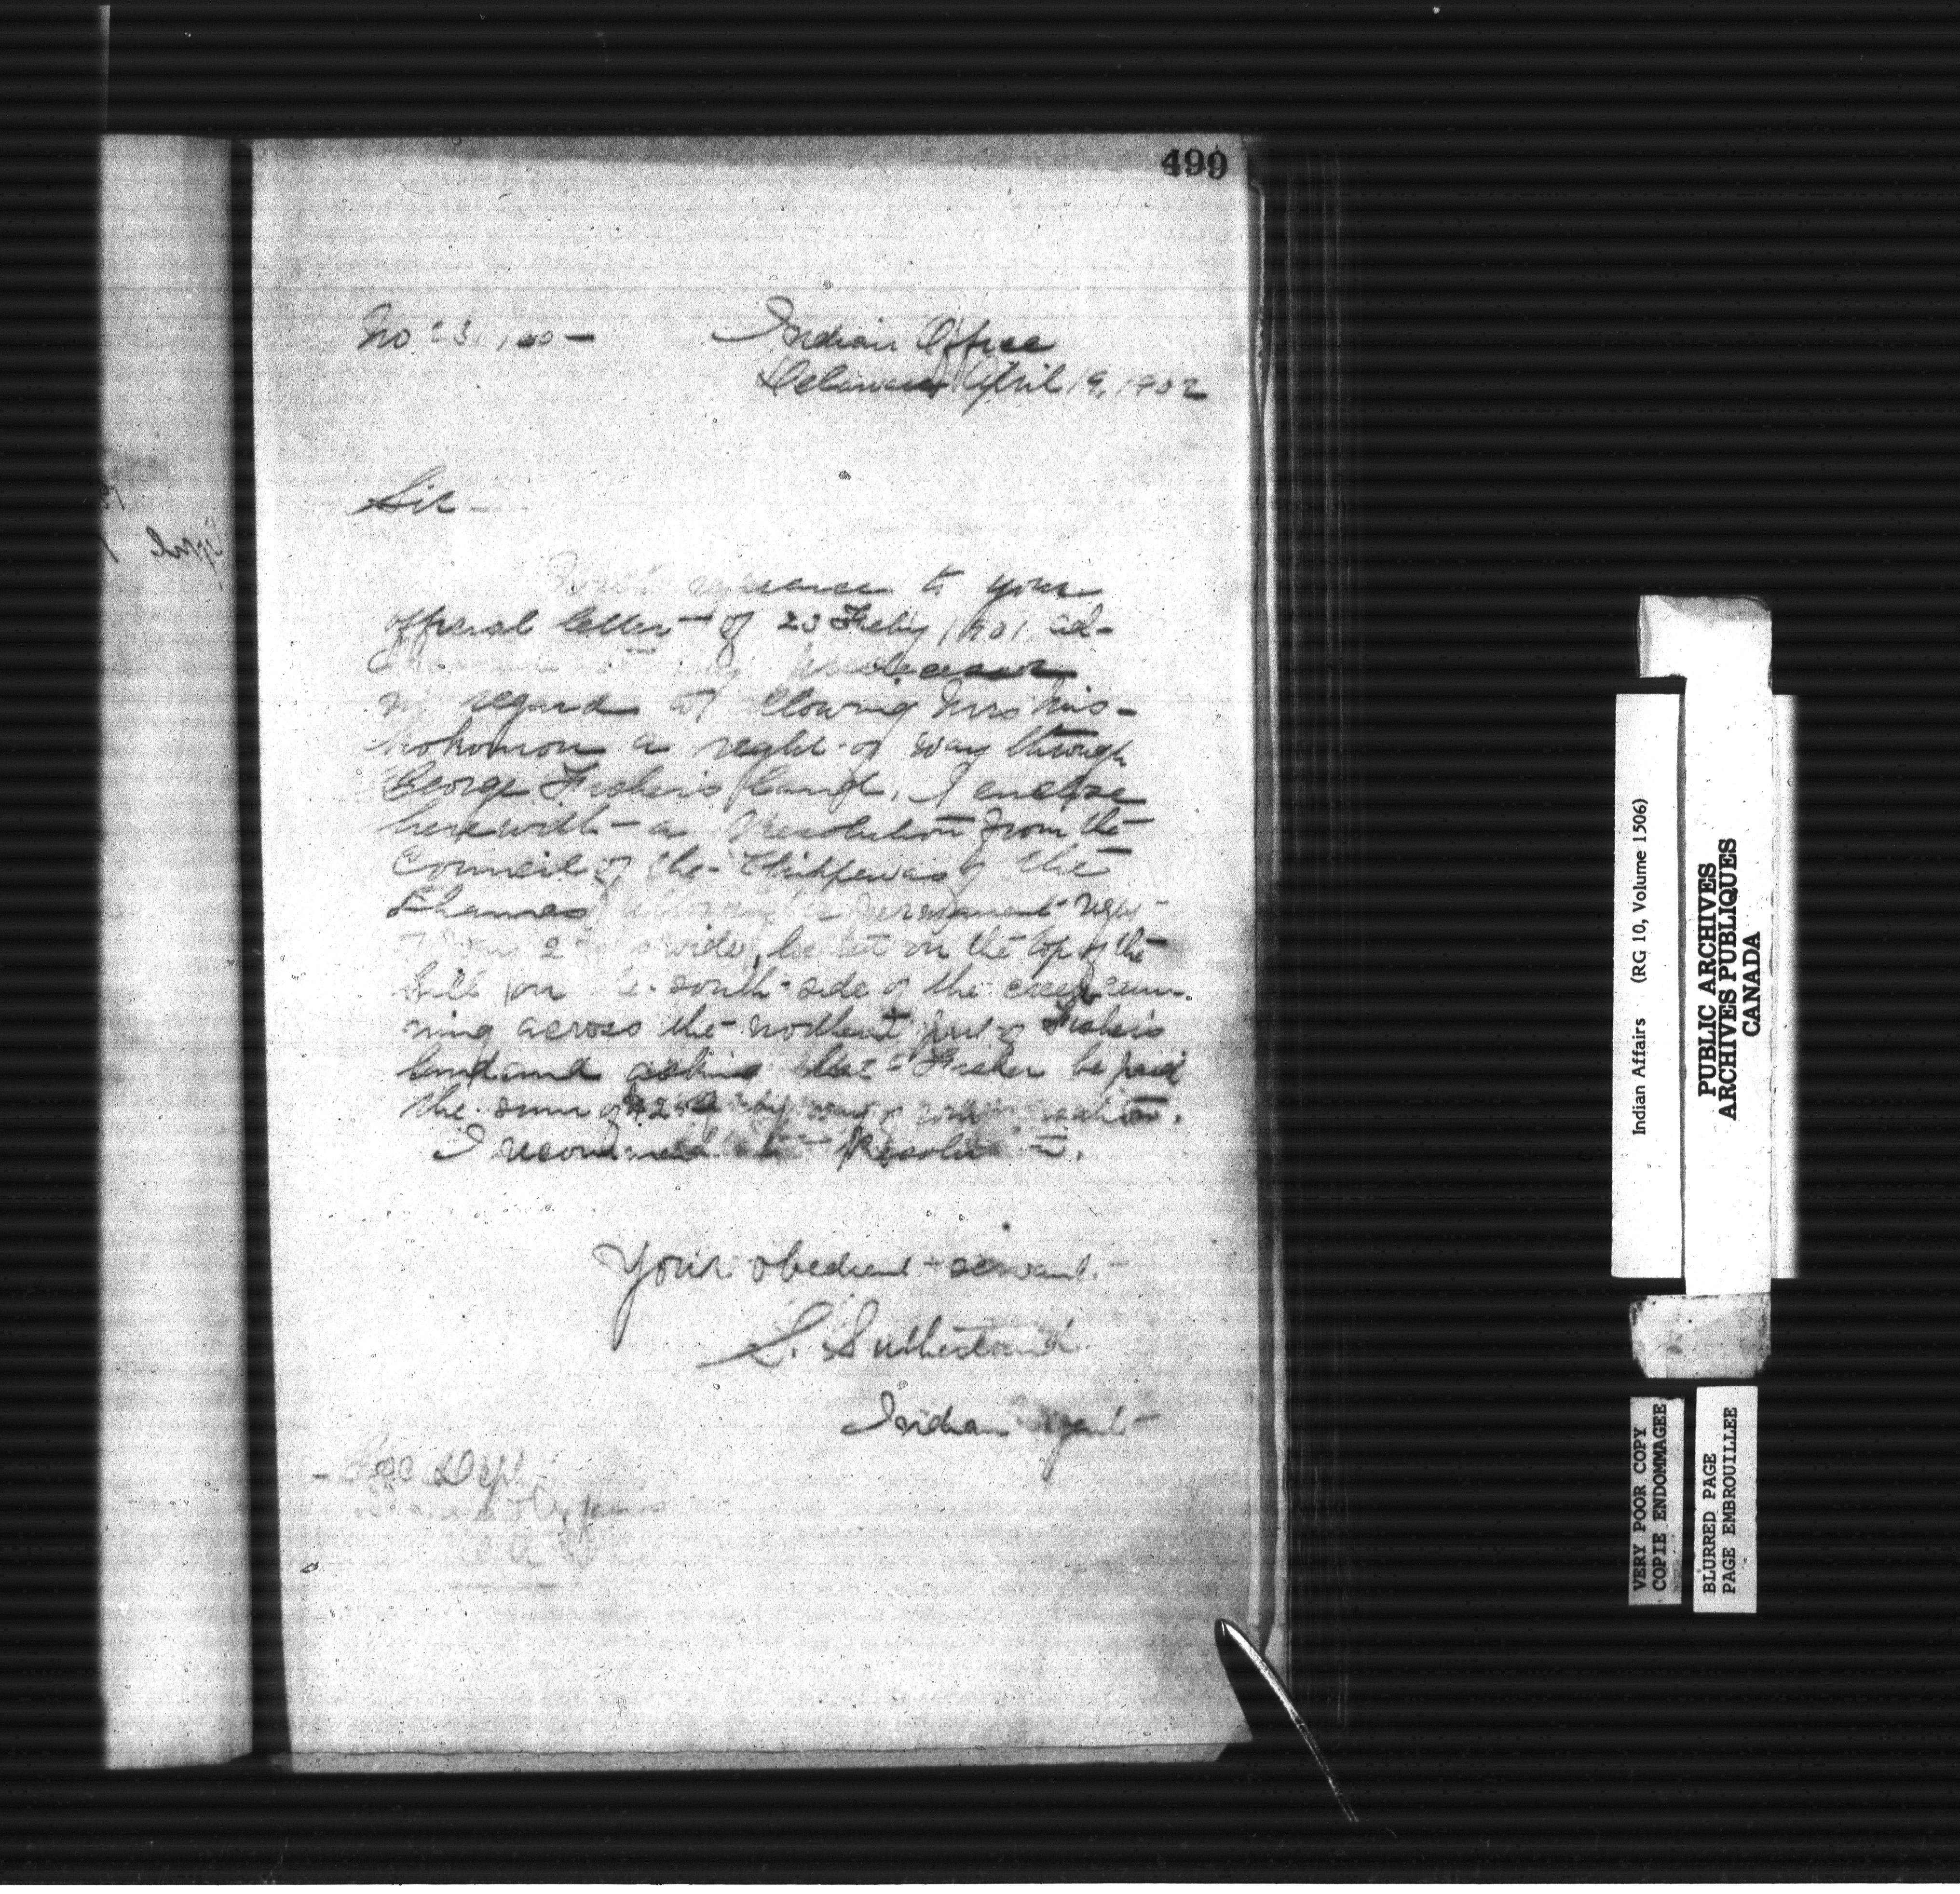 499
No 23,100 -
Indian Office
Delaware April 19, 1902
Sir
reference to your
official letter of 23 Feby 1901, ad-
predecessor
in regard to allowing Mrs Mis-
kokomon a right of way through
George Fisher's land, I enclose
herewith a Resolution from the
Council of the Chippewas of the
Thames allowing a permanent right
of way 2 wide, on the top of the
hill on the south side of the creek run-
ning across the part of Fisher's
land and asking that Fisher be paid
the sum of by way of
I recommend Resolution.
Your obedient servant.
S. Sutherland
Indian Agent
Dept
Indian Affairs (RG 10, Volume 1506)
PUBLIC ARCHIVES
ARCHIVES PUBLIQUES
CANADA
VERY POOR COPY
COPIE ENDOMMAGEE
BLURRED PAGE
PAGE EMBROUILLEE